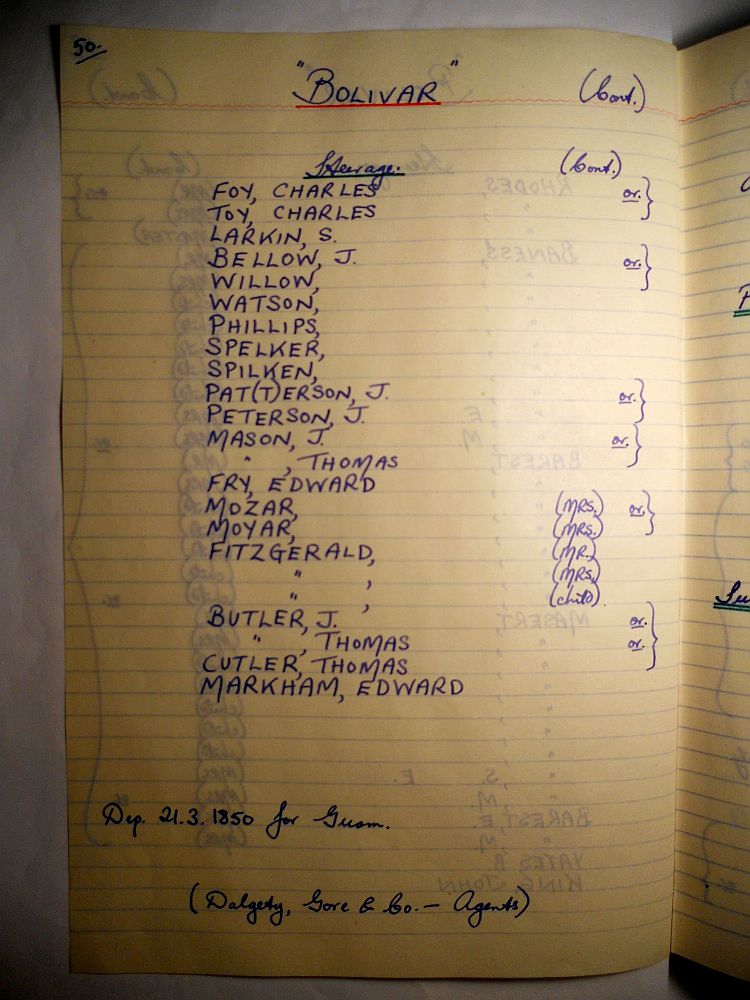 50.
"BOLIVAR" (Cont.)
Steerage: (Cont.)
FOY, CHARLES or. }
TOY, CHARLES
LARKIN, S.
BELLOW, J. or. }
WILLOW,
WATSON,
PHILLIPS,
SPELKER,
SPILKEN,
PAT(T)ERSON, J. or. }
PETERSON, J.
MASON, J. or. }
" , THOMAS
FRY, EDWARD
MOZAR, (MRS.) or. }
MOYAR, (MRS.)
FITZGERALD, (MR.)
" , (MRS.)
" , (child)
BUTLER, J. or. }
" , THOMAS or.
CUTLER, THOMAS
MARKHAM, EDWARD
Dep. 21.3.1850 for Guam.
(Dalgety, Gore & Co. — Agents)